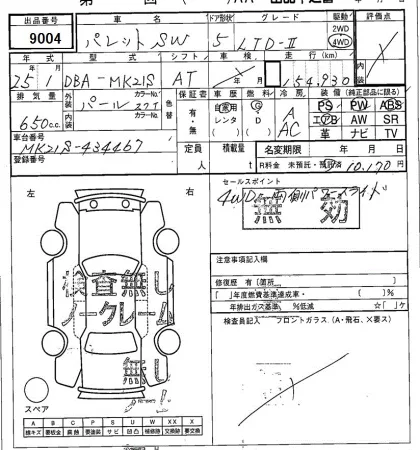 出品番号 車名 ドア形状 グレード 駆動 評価点
9004 パレットSW 5 LTD-Ⅱ 2WD 4WD
年式 型式 シフト 車検 走行(km)
25年1月 DBA-MK21S AT 年 月 154,930
排気量 外装 カラーNo. 色替 保証書 車歴 燃料 冷房 装備(純正部品に限る)
650cc パール Z7T 有・無 自家用 レンタ G D A AC PS PW ABS
内装 カラーNo. エアB AW SR
革 ナビ TV
車台番号
MK21S-434467
定員 人 積載量 t 名変期限 年 月 日
登録番号
R料金 未預託・預託済 10,170円
左 右
セールスポイント
4WD 両側パワースライド
無効
検査無し
ノークレーム
無し
注意事項記入欄
修復歴 有(箇所
「 」年度燃費基準達成車・
年排出ガス基準 %低減 ☆「 」ケ
検査員記入 フロントガラス(A・飛石、×要ス)
スペア
A B C P S U W X XX
線キズ 要板金 腐蝕 要塗装 サビ 凹凸 補修跡 交換跡 要交換